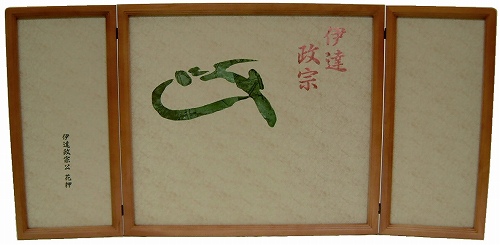 伊達
政宗
伊達政宗公 花押